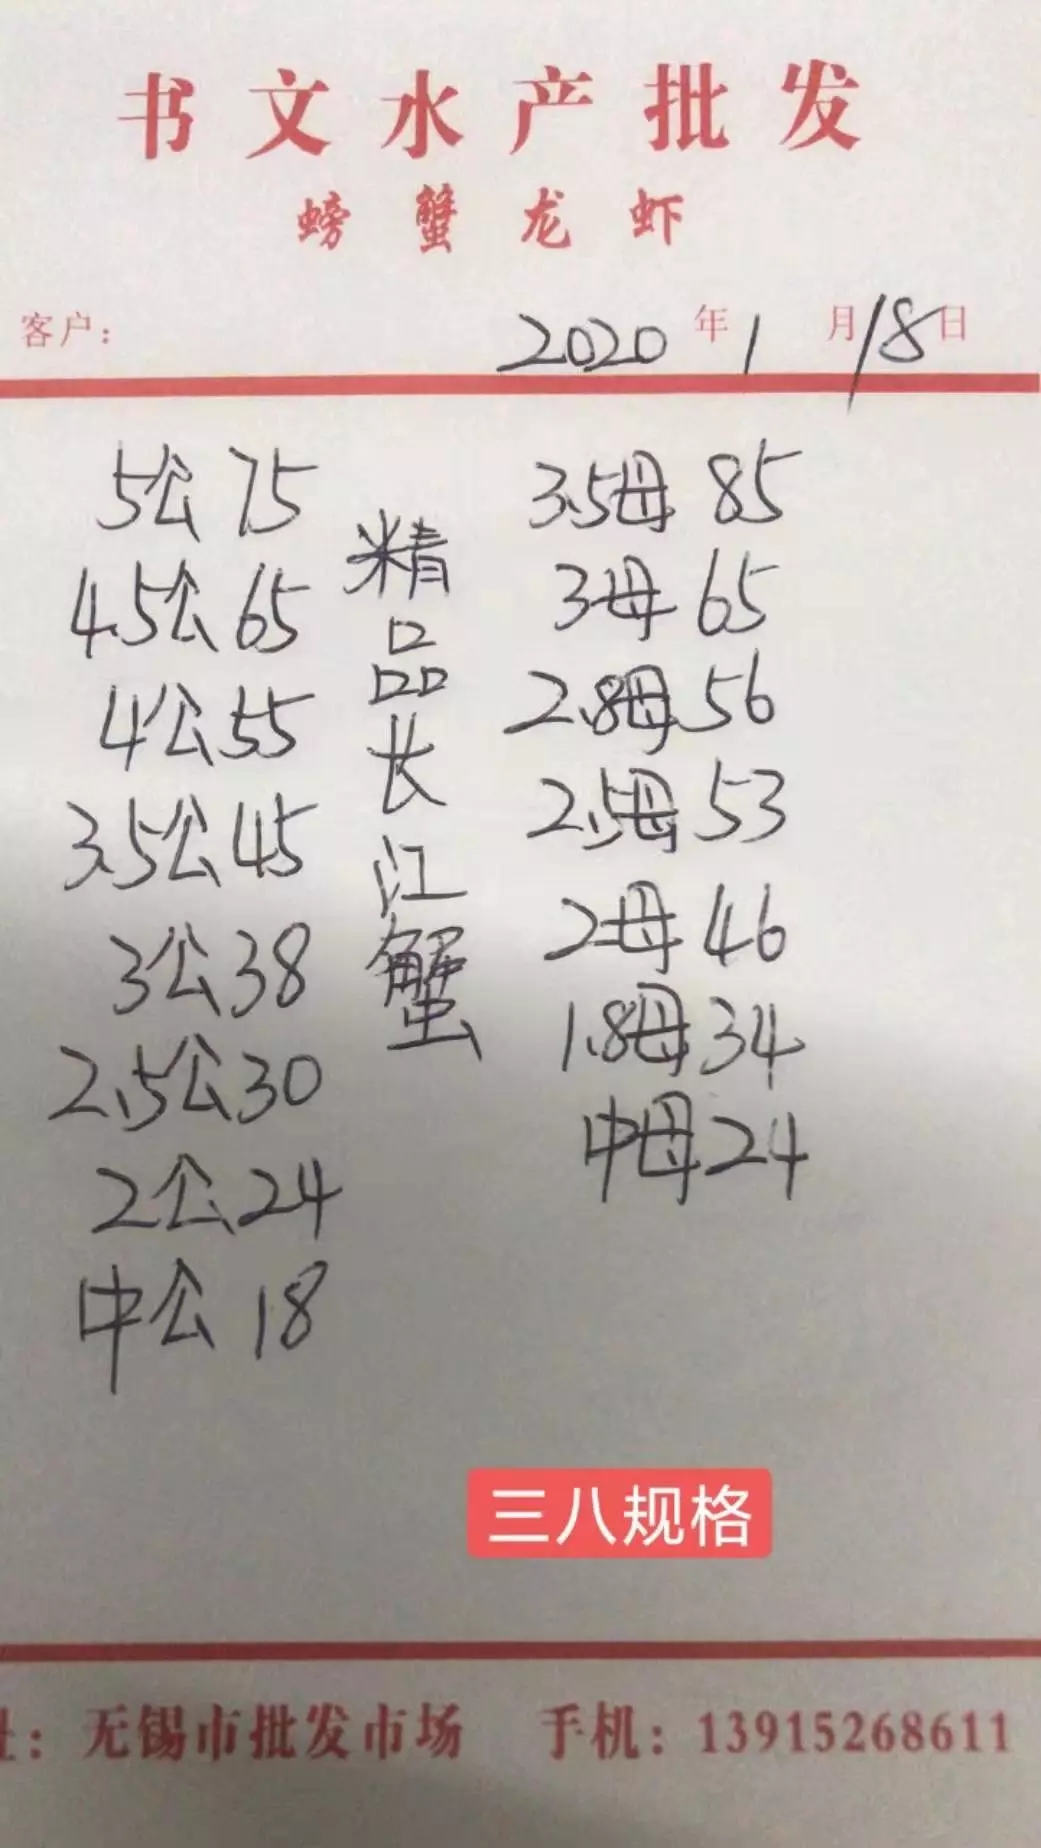 书文水产批发
螃蟹龙虾
客户: 2020年1月18日
5公75
4.5公65
4公55
3.5公45
3公38
2.5公30
2公24
中公18
精品长江蟹
3.5母85
3母65
2.8母56
2.5母53
2母46
1.8母34
中母24
三八规格
址: 无锡市批发市场 手机: 13915268611